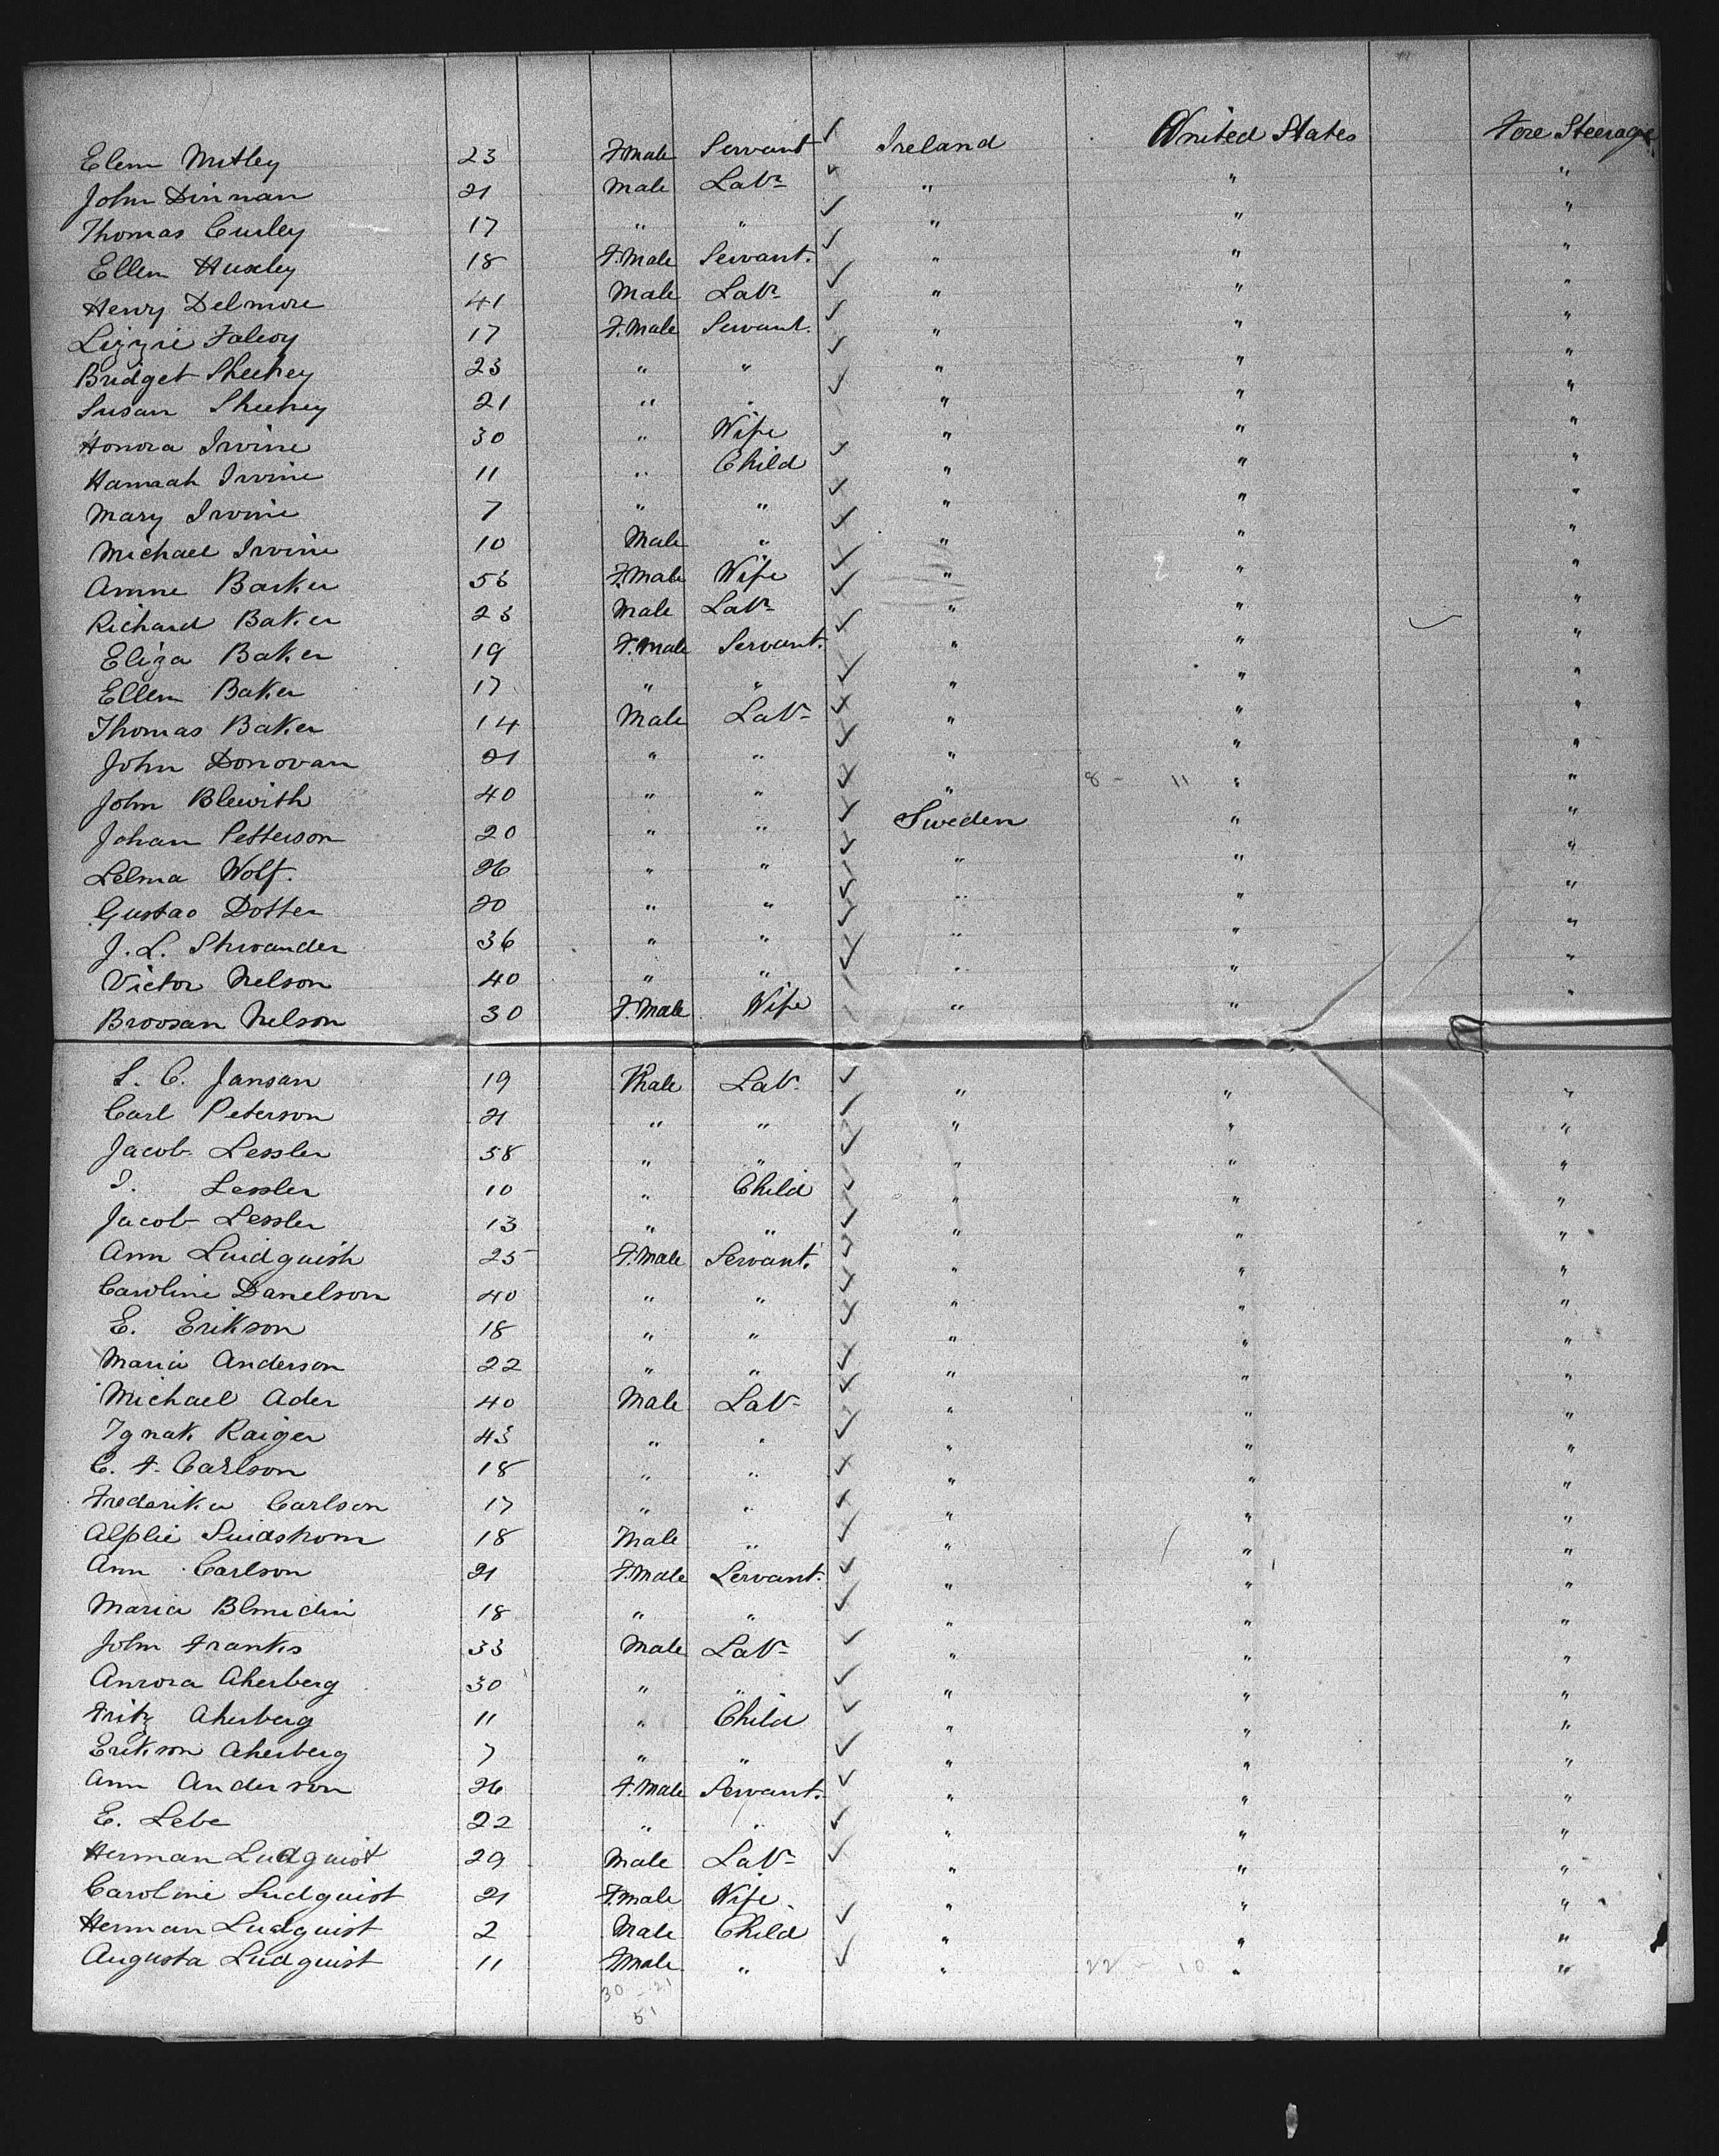 Ellen Mitley 23 F.Male Servant Ireland United States Fore Steerage
John Dinnan 21 Male Labr " " "
Thomas Curley 17 " " " " "
Ellen Huxley 18 F.Male Servant. " " "
Henry Delmore 41 Male Labr " " "
Lizzie Falvey 17 F.Male Servant. " " "
Bridget Sheehey 23 " " " " "
Susan Sheehey 21 " " " " "
Honora Irvine 30 " Wife " " "
Hannah Irvine 11 " Child " " "
Mary Irvine 7 " " " " "
Michael Irvine 10 Male " " " "
Anne Barker 56 F.Male Wife " " "
Richard Baker 23 Male Labr " " "
Eliza Baker 19 F.Male Servant. " " "
Ellen Baker 17 " " " " "
Thomas Baker 14 Male Labr " " "
John Donovan 21 " " " " "
John Blewith 40 " " " 8 - 11 " "
Johan Petterson 20 " " Sweden " "
Selma Wolf. 26 " " " " "
Gustao Dotter 20 " " " " "
J. L. Shwander 36 " " " " "
Victor Nelson 40 " " " " "
Broosan Nelson 30 F.Male Wife " " "
S. C. Jansan 19 Male Labr " " "
Carl Peterson 21 " " " " "
Jacob Lessler 58 " " " " "
I. Lessler 10 " Child " " "
Jacob Lessler 13 " " " " "
Ann Luidquish 25 F.Male Servant. " " "
Caroline Danelson 40 " " " " "
E. Erikson 18 " " " " "
Maria Anderson 22 " " " " "
Michael Ader 40 Male Labr " " "
Ignak Raiger 43 " " " " "
C. F. Carlson 18 " " " " "
Frederika Carlson 17 " " " " "
Alplie Suidshom 18 Male " " " "
Ann Carlson 21 F.Male Servant. " " "
Maria Blmidin 18 " " " " "
John Franks 33 Male Labr " " "
Anrora Aherberg 30 " " " " "
Fritz Aherberg 11 " Child " " "
Erikson Aherberg 7 " " " " "
Ann Anderson 26 F.Male Servant. " " "
E. Lebe 22 " " " " "
Herman Ludquist 29 Male Labr " " "
Caroline Ludquist 21 F.Male Wife " " "
Herman Ludquist 2 Male Child " " "
Augusta Ludquist 11 F.Male " " 22 - 10 " "
30 - 21
51